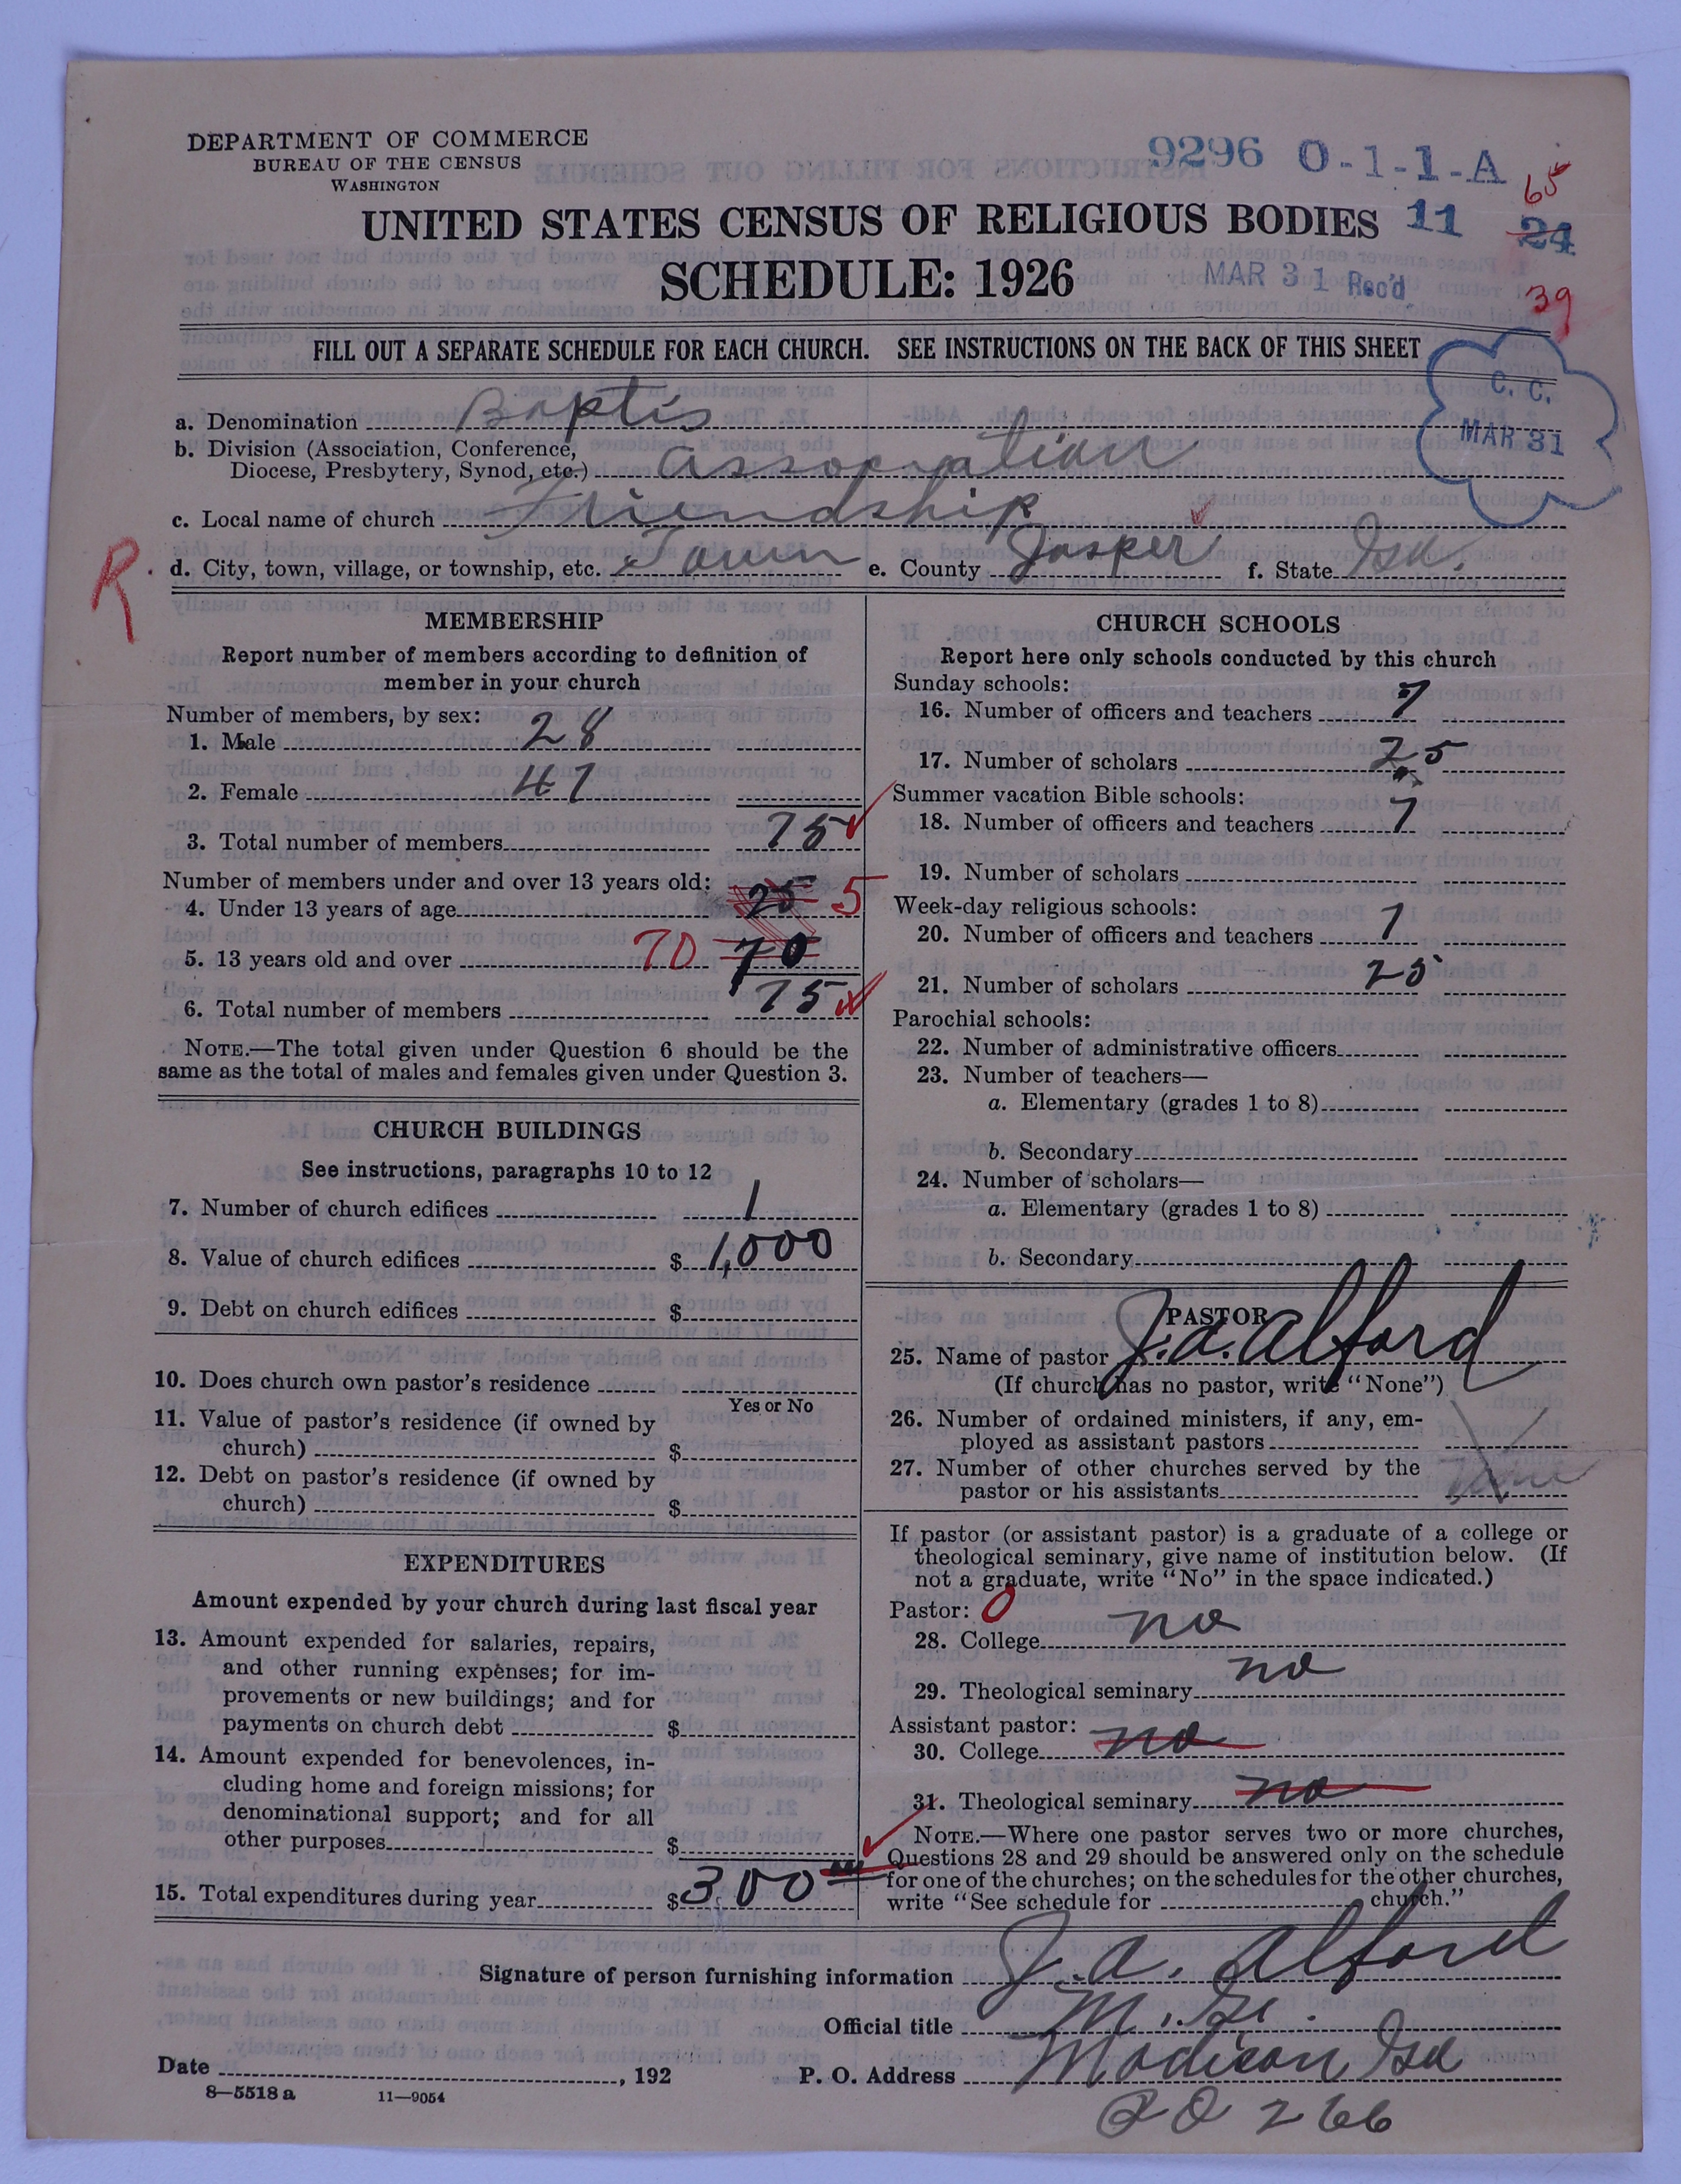 DEPARTMENT OF COMMERCE
BUREAU OF THE CENSUS
WASHINGTON
9296 O-1-1-A
65
UNITED STATES CENSUS OF RELIGIOUS BODIES 11 24
SCHEDULE: 1926
MAR 31 Rec'd
39
FILL OUT A SEPARATE SCHEDULE FOR EACH CHURCH. SEE INSTRUCTIONS ON THE BACK OF THIS SHEET
C. C.
MAR 31
a. Denomination Baptis
b. Division (Association, Conference,
Diocese, Presbytery, Synod, etc.) Association
c. Local name of church Friendship
R
d. City, town, village, or township, etc. Town e. County Jasper f. State
MEMBERSHIP
Report number of members according to definition of
member in your church
Number of members, by sex:
1. Male 28
2. Female 47
3. Total number of members 75
Number of members under and over 13 years old:
4. Under 13 years of age 25 5
5. 13 years old and over 70 70
6. Total number of members 75
NOTE.—The total given under Question 6 should be the
same as the total of males and females given under Question 3.
CHURCH BUILDINGS
See instructions, paragraphs 10 to 12
7. Number of church edifices 1
8. Value of church edifices $ 1,000
9. Debt on church edifices $
10. Does church own pastor's residence
Yes or No
11. Value of pastor's residence (if owned by
church) $
12. Debt on pastor's residence (if owned by
church) $
EXPENDITURES
Amount expended by your church during last fiscal year
13. Amount expended for salaries, repairs,
and other running expenses; for im-
provements or new buildings; and for
payments on church debt $
14. Amount expended for benevolences, in-
cluding home and foreign missions; for
denominational support; and for all
other purposes $
15. Total expenditures during year $ 300
CHURCH SCHOOLS
Report here only schools conducted by this church
Sunday schools:
16. Number of officers and teachers 7
17. Number of scholars 25
Summer vacation Bible schools:
18. Number of officers and teachers 7
19. Number of scholars
Week-day religious schools:
20. Number of officers and teachers 7
21. Number of scholars 25
Parochial schools:
22. Number of administrative officers
23. Number of teachers—
a. Elementary (grades 1 to 8)
b. Secondary
24. Number of scholars—
a. Elementary (grades 1 to 8)
b. Secondary
PASTOR
25. Name of pastor J. A. Alford
(If church has no pastor, write "None")
26. Number of ordained ministers, if any, em-
ployed as assistant pastors
27. Number of other churches served by the
pastor or his assistants
If pastor (or assistant pastor) is a graduate of a college or
theological seminary, give name of institution below. (If
not a graduate, write "No" in the space indicated.)
Pastor: 0
28. College no
29. Theological seminary no
Assistant pastor:
30. College no
31. Theological seminary no
NOTE.—Where one pastor serves two or more churches,
Questions 28 and 29 should be answered only on the schedule
for one of the churches; on the schedules for the other churches,
write "See schedule for church."
Signature of person furnishing information J. A. Alford
Official title
Date , 192 P. O. Address Madison
8—5518 a 11—9054
266